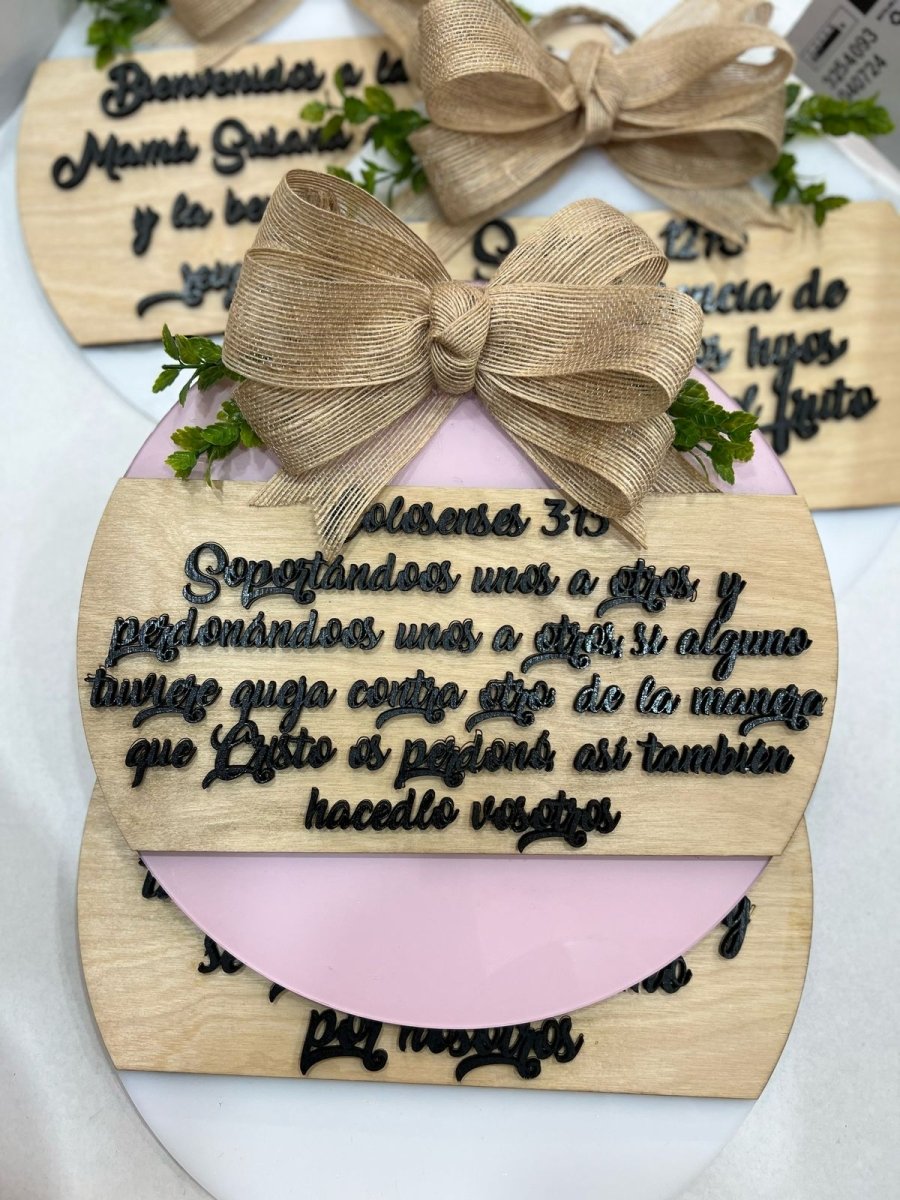 Bienvenidos a la
Mamá Susana
y la
de
hijos
fruto
Colosenses 3:13
Soportándoos unos a otros, y
perdonándoos unos a otros, si alguno
tuviere queja contra otro: de la manera
que Cristo os perdonó, así también
hacedlo vosotros
y
por nosotros